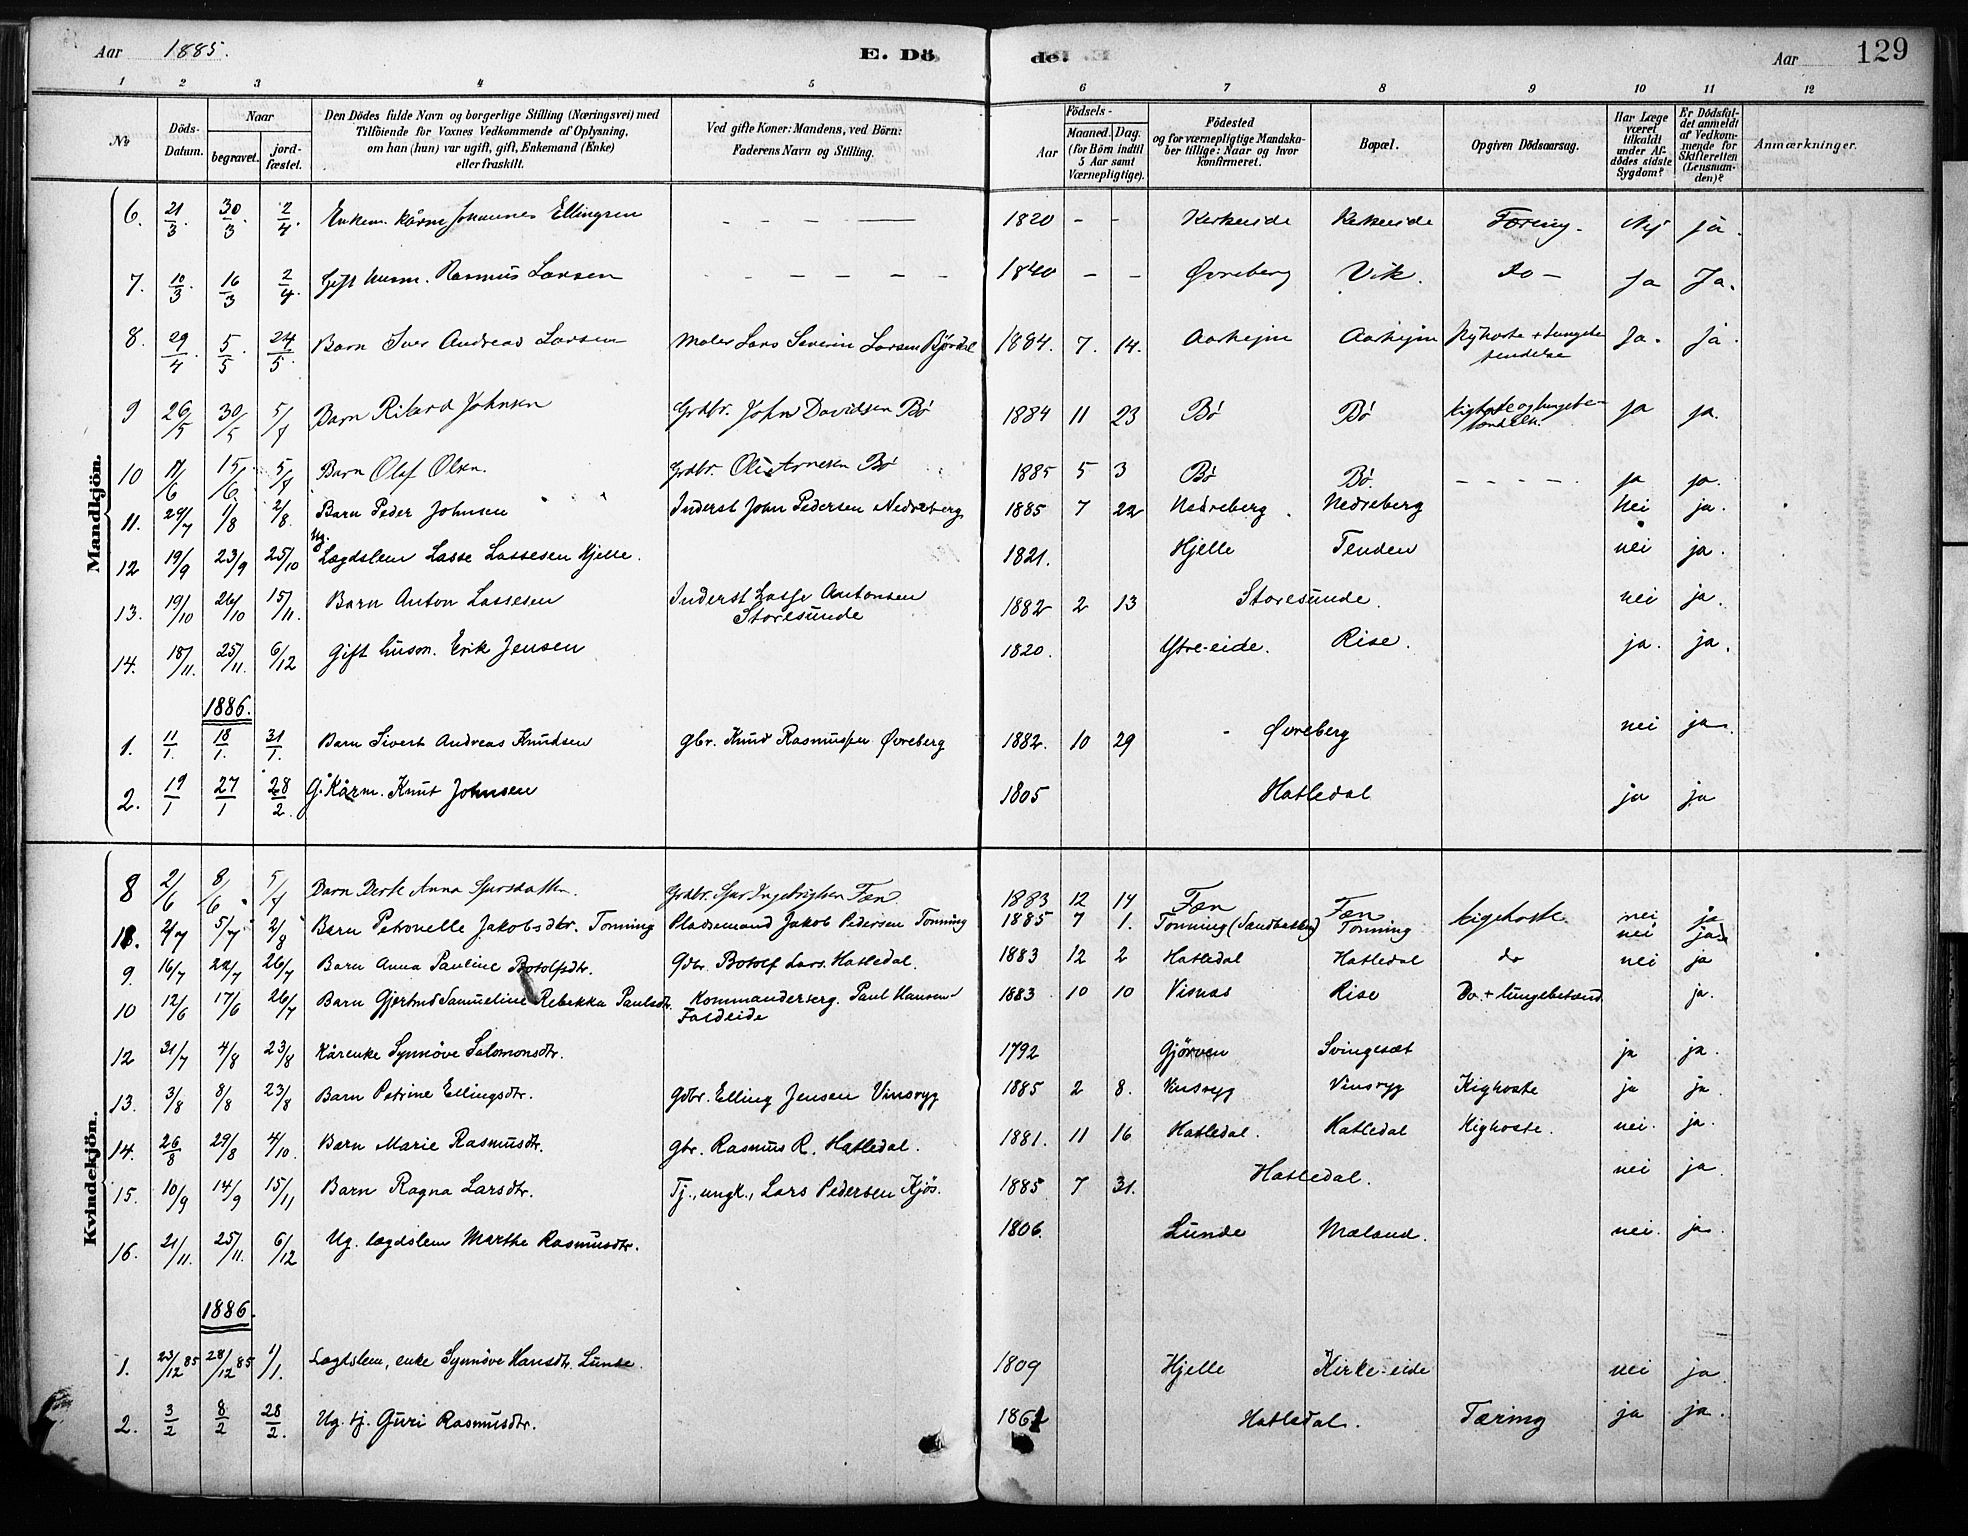 Aar 1885. E. Dö de. Aar 129
1 2 3 4 5 6 7 8 9 10 11 12
No Döds-Datum. Naar begravet. jordfæstet. Den Dödes fulde Navn og borgerlige Stilling (Næringsvei) med Tilföiende for Voxnes Vedkommende af Oplysning, om han (hun) var ugift, gift, Enkemand (Enke) eller fraskilt. Ved gifte Koner: Mandens, ved Börn: Faderens Navn og Stilling. Födsels- Aar Maaned. Dag. (for Börn indtil 5 Aar samt Værnepligtige). Födested og for værnepligtige Mandskaber tillige: Naar og hvor konfirmeret. Bopæl. Opgiven Dödsaarsag. Har Læge været tilkaldt under Afdödes sidste Sygdom? Er Dödsfaldet anmeldt af Vedkommende for Skifteretten (Lensmanden)? Anmærkninger.
Mandkjön.
6. 21/3 30/3 2/4 Enkem. kårm Johannes Ellingsen 1820 - - Kirkeeide Kirkeeide Tæring. Nej ja.
7. 10/3 16/3 2/4 Gift husm. Rasmus Larsen 1840 - - Øvreberg Vik. do - Ja Ja.
8. 29/4 5/5 24/5 Barn Iver Andreas Larsen Maler Lars Severin Larsen 1884. 7. 14. Aarhejm Aarhejm Kighoste + Lungebetendelse Ja. Ja
9 26/5 30/5 5/7 Barn Rikard Johnsen Grdbr. John Davidsen Bø 1884 11 23 Bø Bø Kighoste og lungebetændelse. ja ja.
10 11/6 15/6 5/7 Barn Olaf Olsen. Grdbr. Ole Arnesen Bø 1885 5 3 Bø Bø. - - - - - ja ja.
11. 29/7 1/8 2/8. Barn Peder Johnsen Inderst John Pedersen Nedreberg 1885 7 22 Nedreberg. Nedreberg Nei ja.
12 19/9 23/9 25/10 Ug. Lægdslem Lasse Lassesen Hjelle. 1821. Hjelle Tenden nei ja.
13. 19/10 26/10 15/11. Barn Anton Lassesen Inderst Lasse Antonsen Storesunde 1882 2 13 Storesunde. nei ja.
14. 18/11. 25/11. 6/12 Gift husm. Erik Jensen 1820. Ytre-eide. Rise. ja. ja.
1886.
1. 11/1. 18/1. 31/1. Barn Sivert Andreas Knudsen gbr. Knud Rasmussen Øvreberg 1882. 10 29 Øvreberg nei ja.
2. 19/1 27/1 28/2. G. Kårm. Knut Johnsen 1805 Hatledal ja ja
Kvindekjön.
8 2/6 8/6 5/7 Barn Berte Anna Ivarsdatter. Grdbr. Ivar Ingebrigtsen Fæn. 1883 12 14 Fæn Fæn Kighoste. nei ja
11. 2/7 5/7 2/8 Barn Petronelle Jakobsdtr. Tonning Pladsemand Jakob Pedersen Tonning 1885 7 1. Tonning (Sandbakken) Tonning nei ja.
9 16/7 22/7 26/7 Barn Anna Pauline Botolfsdtr. Gdbr. Botolf Lars. Hatledal. 1883 12 2 Hatledal Hatledal do nei ja
10 12/6 17/6 26/7 Barn Gjertrud Samueline Rebekka Paulsdtr. Kommandersergt. Paul Hansen Faldeide 1883 10 10 Visnæs Rise Do. + lungebetænd. ja.
12 31/7 4/8 23/8 Kårenke Synnöve Salomonsdtr. 1792 Gjörven Svingesæt ja ja.
13. 3/8 8/8 23/8 Barn Petrine Ellingsdtr. Gdbr. Elling Jensen Vinsryg 1885 2 8. Vinsryg Vinsryg Kighoste ja ja
14. 26/8 29/8 4/10. Barn Marie Rasmusdtr. gbr. Rasmus R. Hatledal. 1881. 11 16 Hatledal. Hatledal Kighoste. nei. ja.
15. 10/9 14/9 15/11 Barn Ragna Larsdtr. Tj., ungk., Lars Pedersen Kjös. 1885 7 31. Hatledal. nei ja.
16. 21/11. 25/11. 6/12 Ug. lægdslem Marthe Rasmusdtr. 1806. Lunde Mæland. nei. ja.
1886.
1. 23/12 85 28/12 85 1/1. Lægdslem, enke Synnöve Hansdtr. Lunde. 1809 Hjelle Kirke-eide nei ja.
2. 3/2 8/2 28/2. Ug. tj. Guri Rasmusdtr. Hatledal. Tæring ja ja.